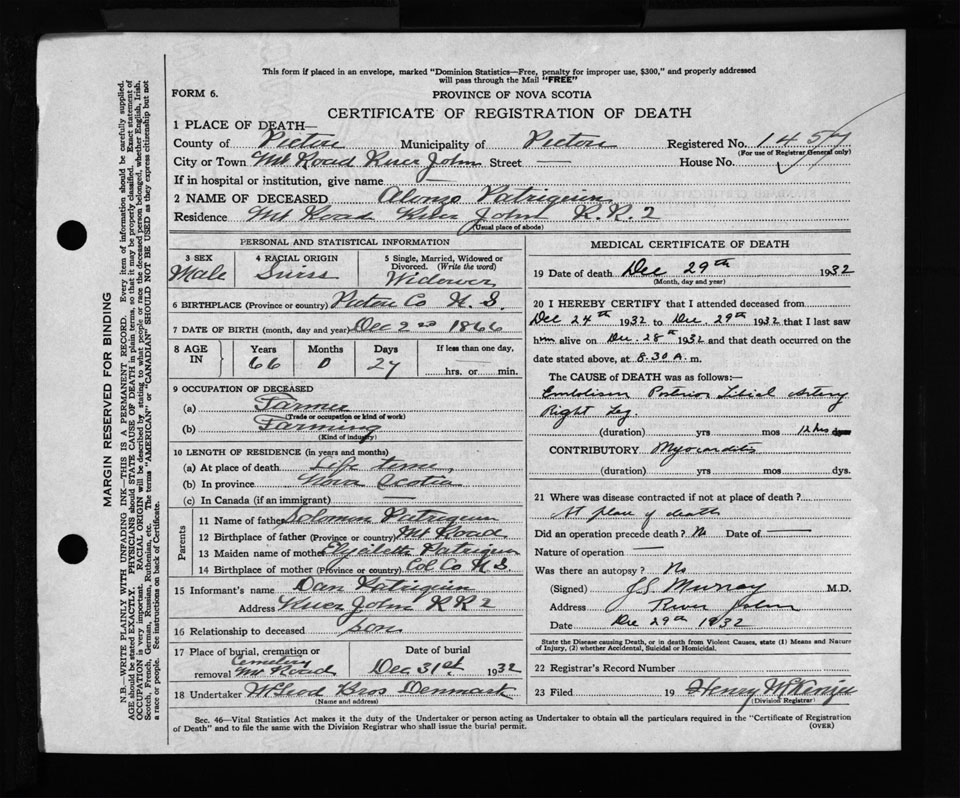 This form if placed in an envelope, marked "Dominion Statistics—Free, penalty for improper use, $300," and properly addressed
will pass through the Mail "FREE"
FORM 6.
PROVINCE OF NOVA SCOTIA
CERTIFICATE OF REGISTRATION OF DEATH
1 PLACE OF DEATH—
County of Pictou Municipality of Pictou Registered No. 1457
(For use of Registrar General only)
City or Town Mt Road River John Street — House No.
If in hospital or institution, give name —
2 NAME OF DECEASED Alonzo Patriquin
Residence Mt Road River John R.R.2
(Usual place of abode)
PERSONAL AND STATISTICAL INFORMATION
3 SEX Male
4 RACIAL ORIGIN Swiss
5 Single, Married, Widowed or Divorced. (Write the word) Widower
6 BIRTHPLACE (Province or country) Pictou Co N.S.
7 DATE OF BIRTH (month, day and year) Dec 2nd 1866
8 AGE IN Years 66 Months 0 Days 27 If less than one day, hrs. or min.
9 OCCUPATION OF DECEASED
(a) Farmer
(Trade or occupation or kind of work)
(b) Farming
(Kind of industry)
10 LENGTH OF RESIDENCE (in years and months)
(a) At place of death Life time
(b) In province Nova Scotia
(c) In Canada (if an immigrant) —
Parents
11 Name of father Solomon Patriquin
12 Birthplace of father (Province or country) Mt Road
13 Maiden name of mother Patriquin
14 Birthplace of mother (Province or country) Col Co N.S.
15 Informant's name Dan Patriquin
Address River John RR2
16 Relationship to deceased son
17 Place of burial, cremation or removal Cemetery Mt Road
Date of burial Dec 31st 1932
18 Undertaker McLeod Bros Denmark
(Name and address)
MEDICAL CERTIFICATE OF DEATH
19 Date of death Dec 29th 1932
(Month, day and year)
20 I HEREBY CERTIFY that I attended deceased from
Dec 24th 1932 to Dec. 29th 1932 that I last saw
him alive on Dec. 28th 1932 and that death occurred on the
date stated above, at 8.30 A. m.
The CAUSE of DEATH was as follows:—
Embolism Posterior Tibial Artery
Right Leg.
(duration) yrs mos 12 hrs dys
CONTRIBUTORY Myocarditis
(duration) yrs. mos. dys.
21 Where was disease contracted if not at place of death?
At place of death
Did an operation precede death? No Date of —
Nature of operation —
Was there an autopsy? No
(Signed) J.S. Murray M.D.
Address River John
Date Dec 29th 1932
State the Disease causing Death, or in death from Violent Causes, state (1) Means and Nature
of Injury, (2) whether Accidental, Suicidal or Homicidal.
22 Registrar's Record Number
23 Filed 19 Henry McKenzie
(Division Registrar)
Sec. 46—Vital Statistics Act makes it the duty of the Undertaker or person acting as Undertaker to obtain all the particulars required in the "Certificate of Registration
of Death" and to file the same with the Division Registrar who shall issue the burial permit.
(OVER)
MARGIN RESERVED FOR BINDING
N.B.—WRITE PLAINLY WITH UNFADING INK—THIS IS A PERMANENT RECORD. Every item of information should be carefully supplied.
AGE should be stated EXACTLY. PHYSICIANS should STATE CAUSE OF DEATH in plain terms, so that it may be properly classified. Exact statement of
OCCUPATION is very important. RACIAL ORIGIN will be described by stating to what people or race the deceased person belonged, whether English, Irish,
Scotch, French, German, Russian, Ruthenian, etc. The terms "AMERICAN" or "CANADIAN" SHOULD NOT BE USED as they express citizenship but not
a race or people. See instructions on back of Certificate.